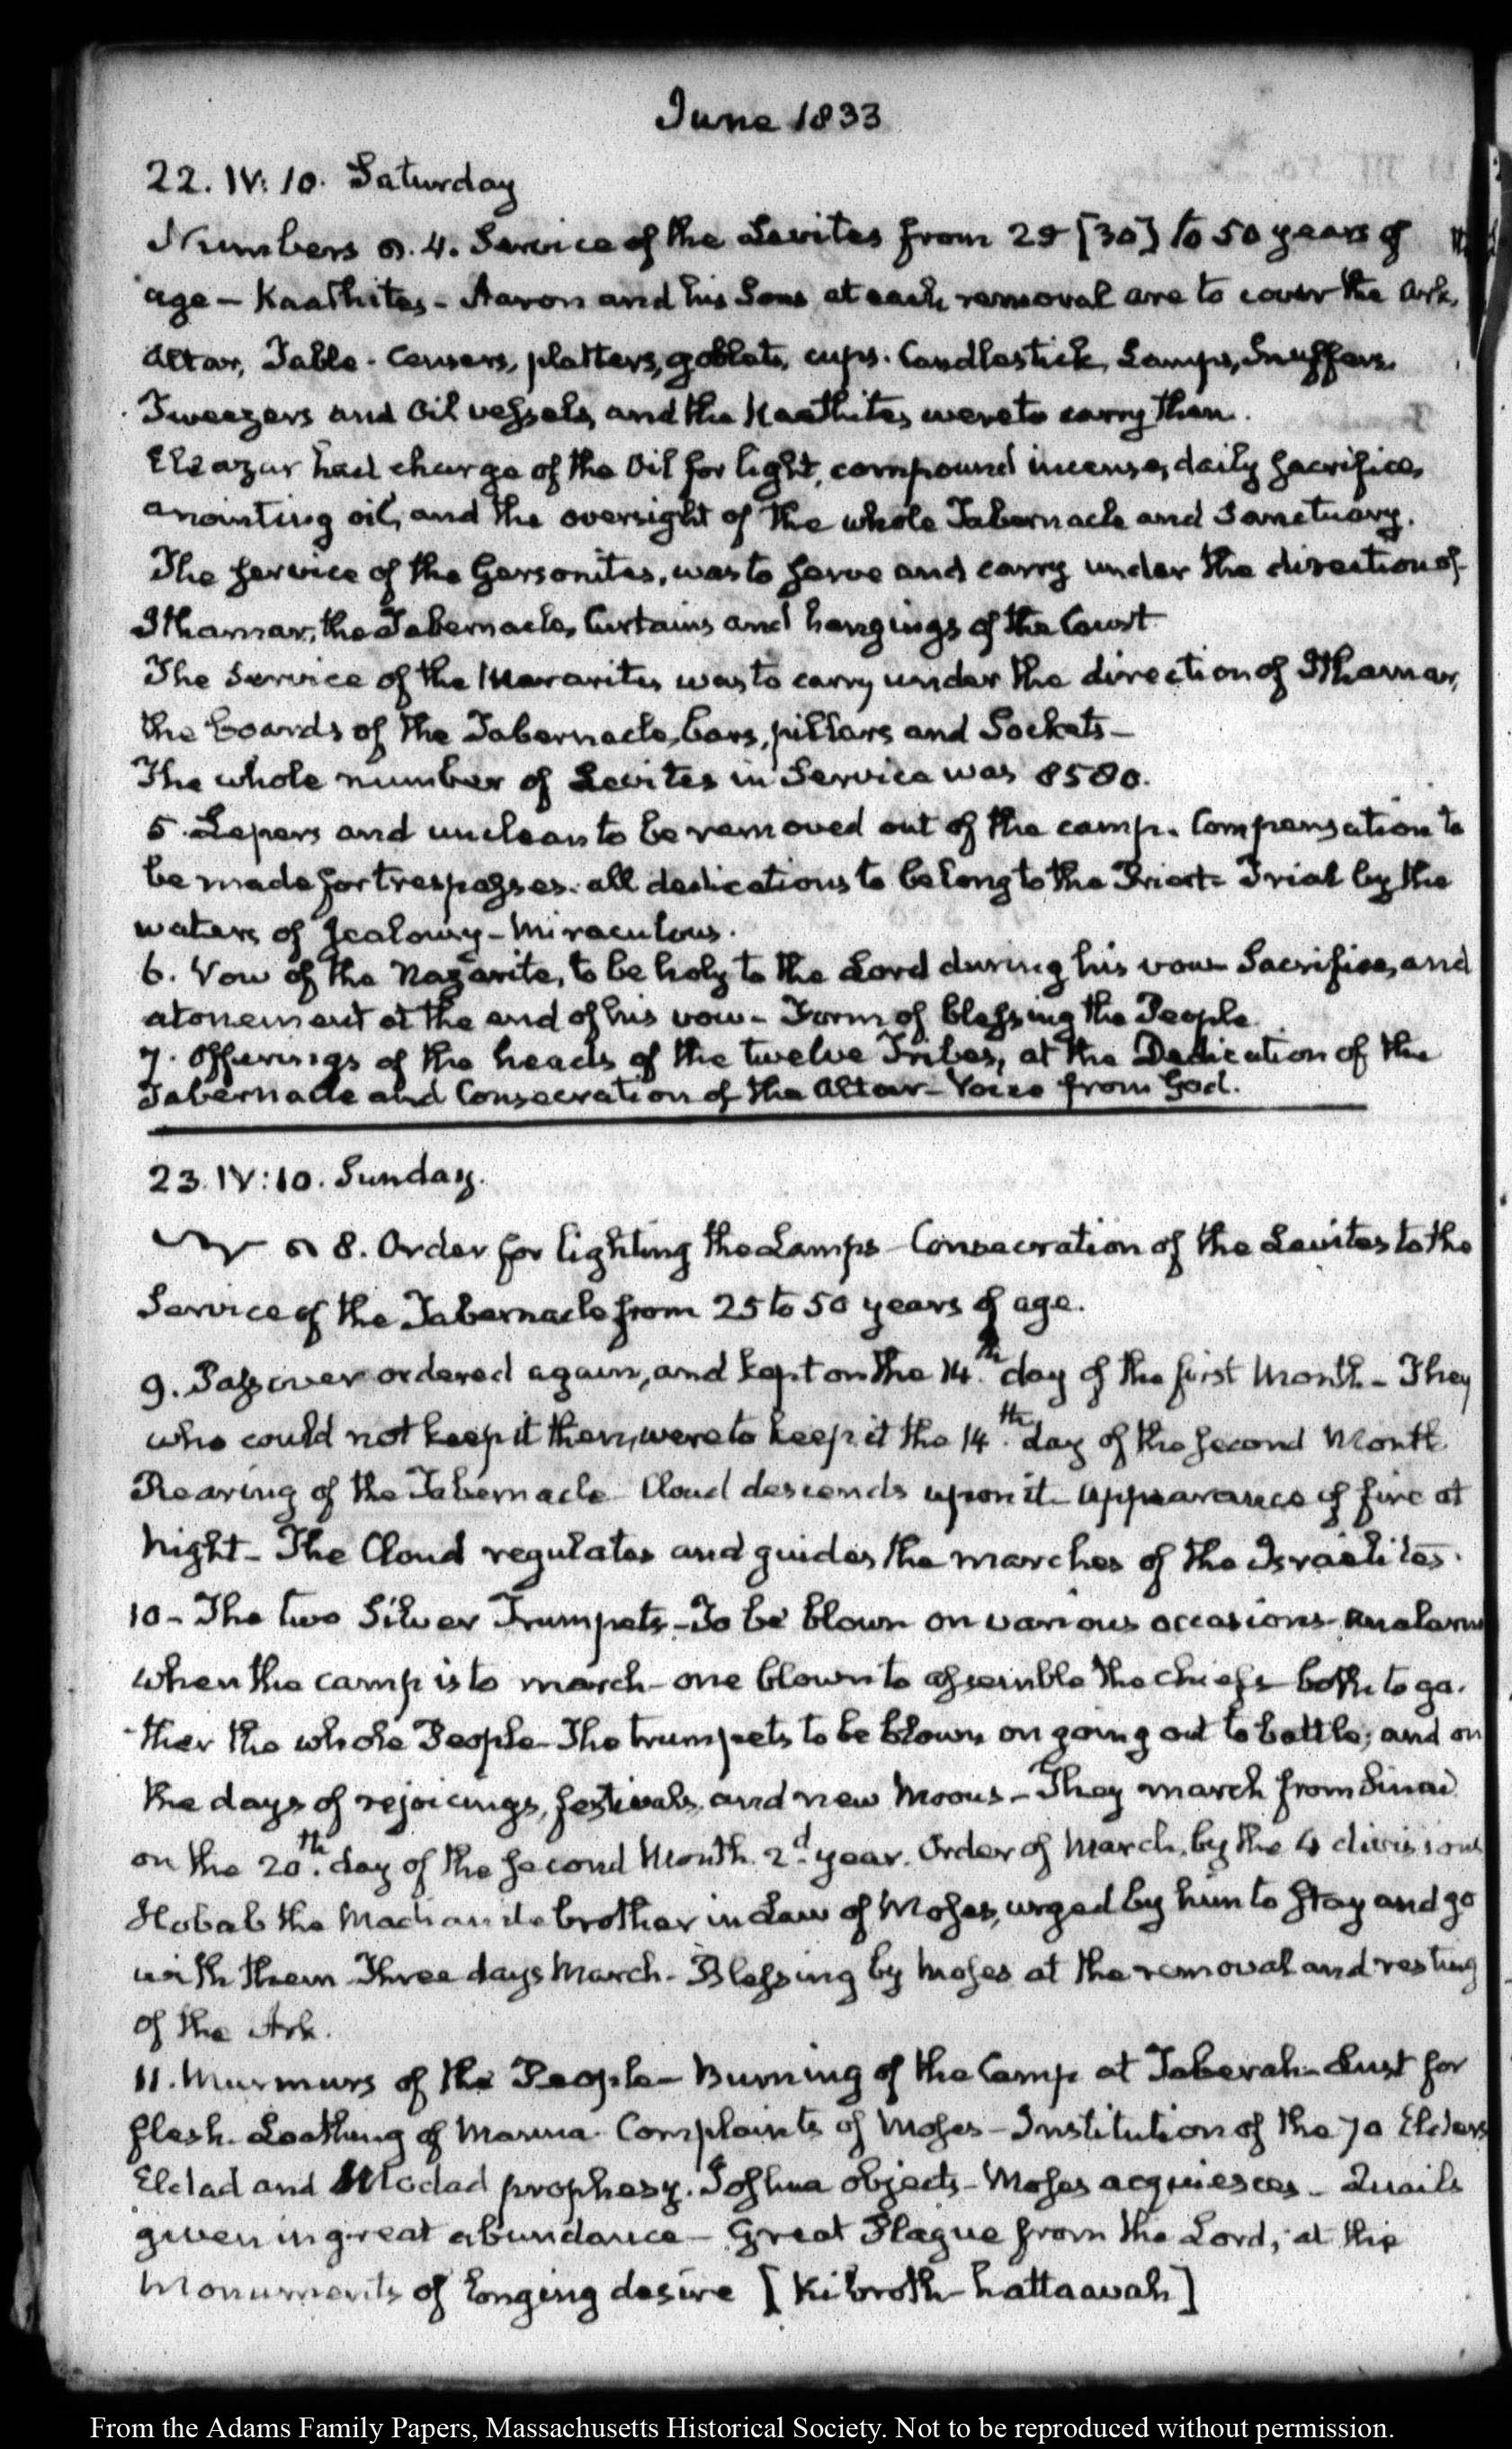 June 1833
22. IV: 10. Saturday
Numbers 4. Service of the Levites from 25 [30] to 50 years of
age – Kaathites – Aaron and his Sons at each removal are to cover the Ark,
Altar, Table – Censers, platters, goblets, cups. Candlestick, Lamps, Snuffers,
Tweezers and Oil vessels, and the Kaathites were to carry them.
Eleazar had charge of the Oil for light, compound incense, daily sacrifice,
anointing oil, and the oversight of the whole Tabernacle and Sanctuary.
The service of the Gersonites, was to serve and carry under the direction of
Ithamar, the Tabernacle, Curtains and hangings of the Court
The Service of the Merarites was to carry under the direction of Ithamar,
the boards of the Tabernacle, bars, pillars and Sockets –
The whole number of Levites in Service was 8580.
5. Lepers and unclean to be removed out of the camp. Compensation to
be made for trespasses. all dedications to belong to the Priest – Trial by the
waters of Jealousy – Miraculous.
6. Vow of the Nazarite, to be holy to the Lord during his vow – Sacrifice, and
atonement at the end of his vow – Form of blessing the People.
7. Offerings of the heads of the twelve Tribes, at the Dedication of the
Tabernacle and Consecration of the Altar – Voice from God.
23. IV: 10. Sunday.
8. Order for lighting the Lamps – Consecration of the Levites to the
Service of the Tabernacle from 25 to 50 years of age.
9. Passover ordered again, and kept on the 14.th day of the first Month – They
who could not keep it then, were to keep it the 14.th day of the second Month
Rearing of the Tabernacle – Cloud descends upon it – appearance of fire at
Night – The Cloud regulates and guides the marches of the Israelites.
10 – The two Silver Trumpets – To be blown on various occasions – an alarm
when the camp is to march – one blown to assemble the chiefs – both to ga-
-ther the whole People – The trumpets to be blown on going out to battle; and on
the days of rejoicings, festivals, and new Moons – They march from Sinai
on the 20.th day of the second Month 2.d year. Order of March, by the 4 divisions
Hobab the Madianite brother in Law of Moses, urged by him to stay and go
with them – Three days March – Blessing by Moses at the removal and resting
of the Ark.
11. Murmurs of the People – Burning of the Camp at Taberah – Lust for
flesh – Loathing of Manna – Complaints of Moses – Institution of the 70 Elders
Eldad and Modad prophesy. Joshua objects – Moses acquiesces – Quails
given in great abundance – Great Plague from the Lord; at the
Monuments of longing desire [Kibroth-hattaavah]
From the Adams Family Papers, Massachusetts Historical Society. Not to be reproduced without permission.